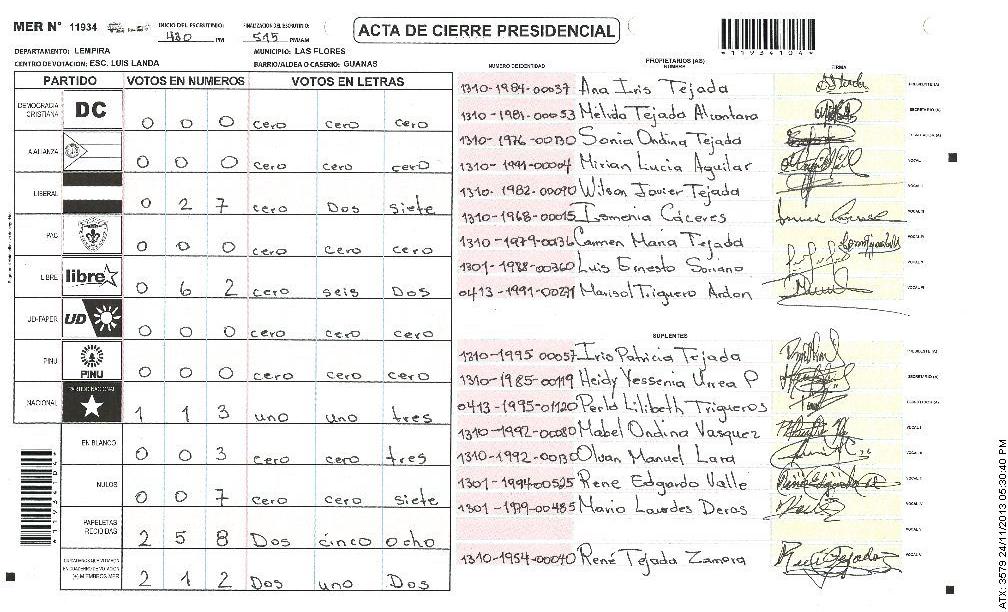 MER N° 11934
INICIO DEL ESCRUTINIO: 430 PM
FINALIZACION DEL ESCRUTINIO: 515 PM/AM
ACTA DE CIERRE PRESIDENCIAL
*11934104*
DEPARTAMENTO: LEMPIRA MUNICIPIO: LAS FLORES
CENTRO DE VOTACION: ESC. LUIS LANDA BARRIO/ALDEA O CASERIO: GUANAS
PARTIDO VOTOS EN NUMEROS VOTOS EN LETRAS
DEMOCRACIA CRISTIANA DC 0 0 0 cero cero cero
ALIANZA 0 0 0 cero cero cero
LIBERAL 0 2 7 cero Dos siete
PAC 0 0 0 cero cero cero
LIBRE libre 0 6 2 cero seis Dos
UD-FAPER UD 0 0 0 cero cero cero
PINU PINU 0 0 0 cero cero cero
NACIONAL PARTIDO NACIONAL 1 1 3 uno uno tres
EN BLANCO 0 0 3 cero cero tres
NULOS 0 0 7 cero cero siete
PAPELETAS RECIBIDAS 2 5 8 Dos cinco ocho
2 1 2 Dos uno Dos
NUMERO DE IDENTIDAD PROPIETARIOS (AS) NOMBRE FIRMA
1310-1984-00037 Ana Iris Tejada PRESIDENTE (A)
1310-1981-00053 Melida Tejada Alcantara SECRETARIO (A)
1310-1976-00130 Sonia Ondina Tejada
1310-1991-00004 Mirian Lucia Aguilar
1310-1982-00090 Wilson Javier Tejada
1310-1968-00015 Ismenia Cáceres
1310-1979-0036 Carmen Maria Tejada
1301-1988-00360 Luis Ernesto Soriano
0413-1991-00291 Marisol Triguero Ardon
SUPLENTES
1310-1995 00057 Iris Patricia Tejada
1310-1985-00119 Heidy Yessenia Urrea P
0413-1995-01120 Perla Lilibeth Trigueros
1310-1992-00080 Mabel Ondina Vasquez
1310-1992-00130 Olvan Manuel Lara
1301-1994-00525 Rene Edgardo Valle
1301-1979-00485 Maria Lourdes Deras
1310-1954-00040 René Tejada Zamora
ATX: 3579 24/11/2013 05:30:40 PM